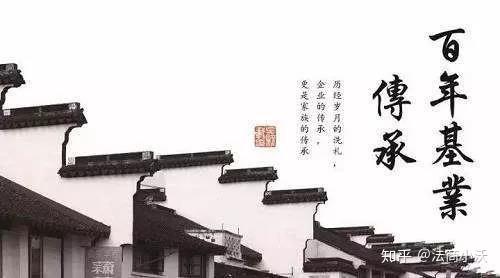 百年基業
傳承
历经岁月的洗礼，
企业的传承，
更是家族的传承
知乎 @法商小沃